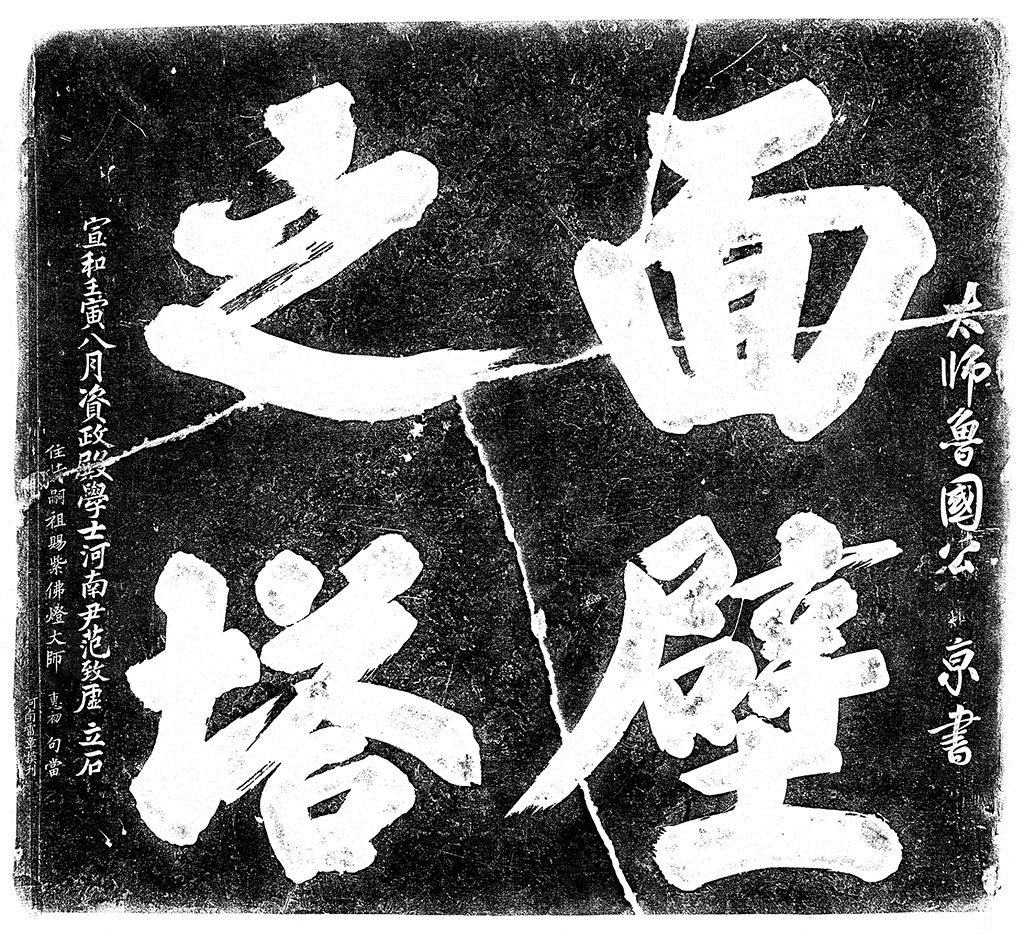 面壁
之塔
太師魯國公京書
宣和壬寅八月資政殿學士河南尹范致虛立石
住持嗣祖賜紫佛燈大師惠初句當
河南
刋